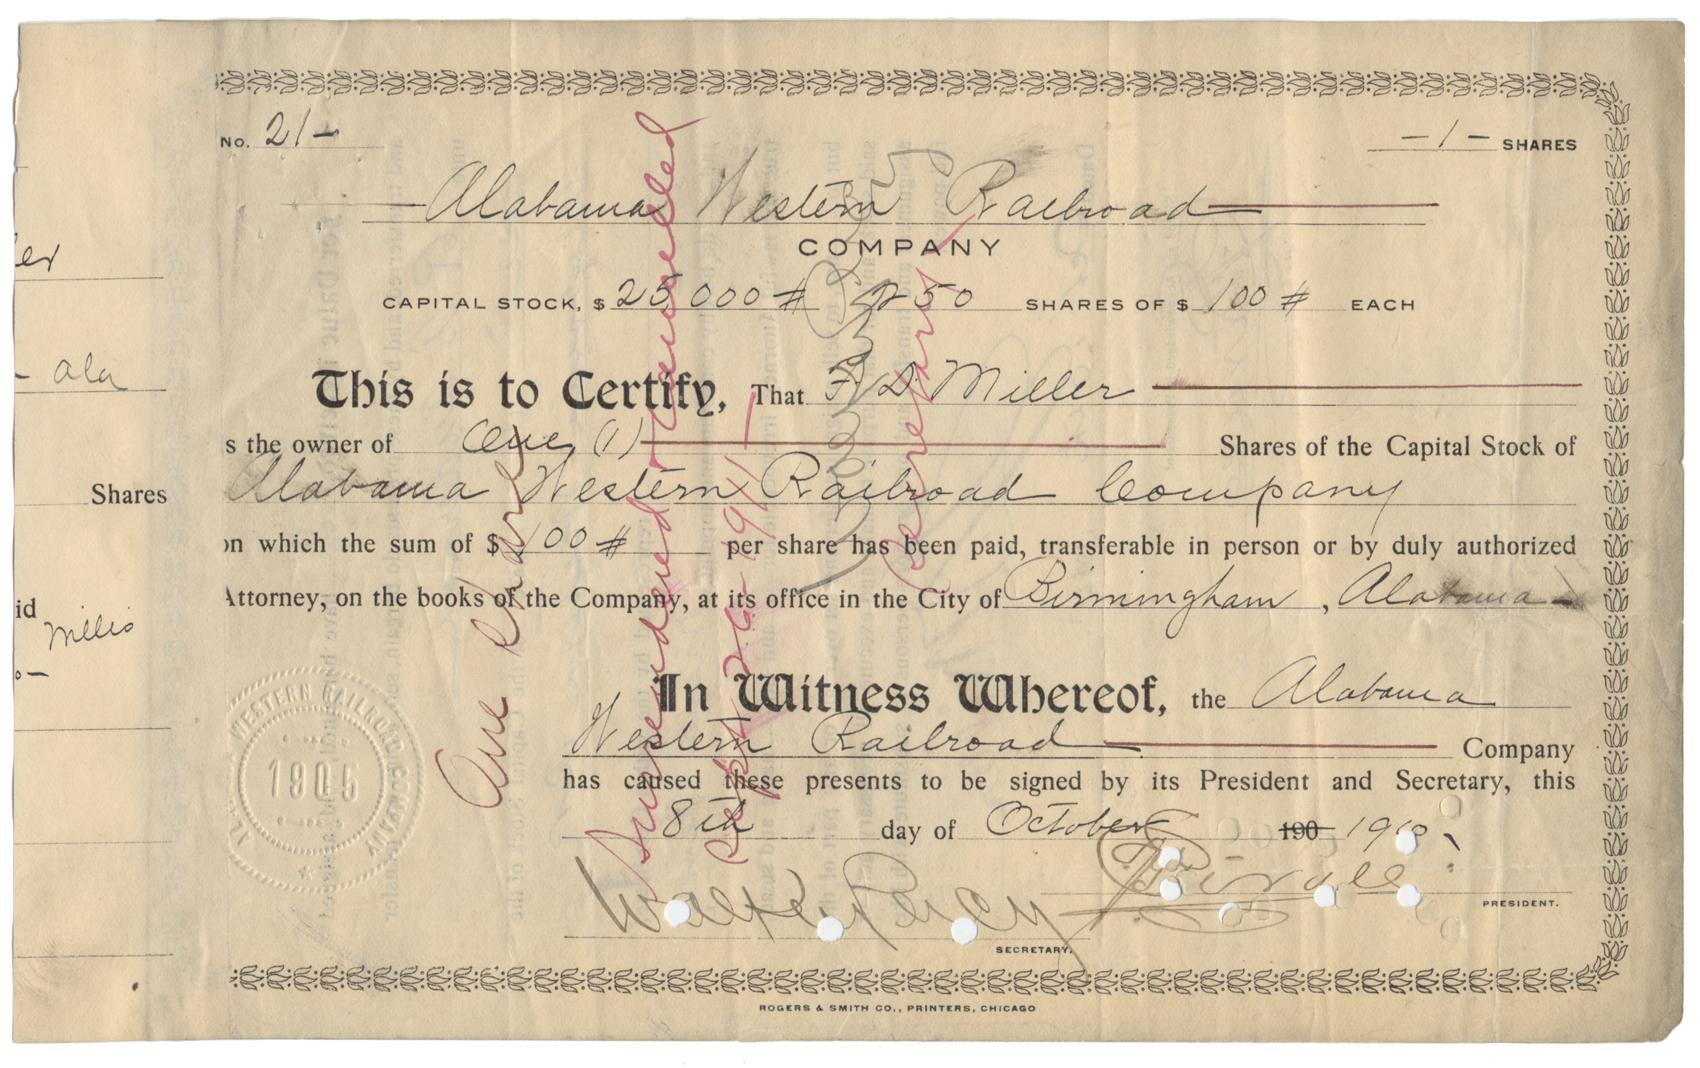 er
ala
Shares
id
Millis
No. 21-
-1- SHARES
Alabama Western Railroad
COMPANY
CAPITAL STOCK, $ 25,000 # 250 SHARES OF $ 100 # EACH
This is to Certify, That F D Miller
s the owner of One (1) Shares of the Capital Stock of
Alabama Western Railroad Company
on which the sum of $ 100 # per share has been paid, transferable in person or by duly authorized
Attorney, on the books of the Company, at its office in the City of Birmingham, Alabama
In Witness Whereof, the Alabama
Western Railroad Company
has caused these presents to be signed by its President and Secretary, this
8th day of October 190 1910
PRESIDENT.
Walker Percy
SECRETARY.
WESTERN RAILROAD COMPANY
1905
One Share
Surrendered & Cancelled
Sept 26-1911
Secretary
ROGERS & SMITH CO., PRINTERS, CHICAGO